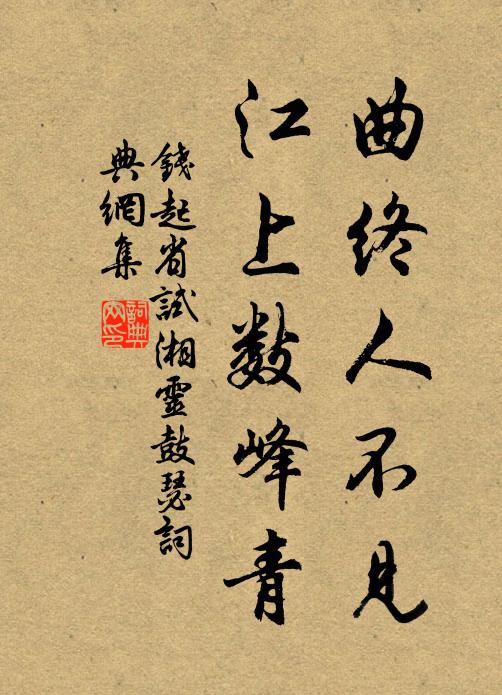 曲终人不見
江上数峰青
錢起省試湘靈鼓瑟詞
典網集
詞典
网印